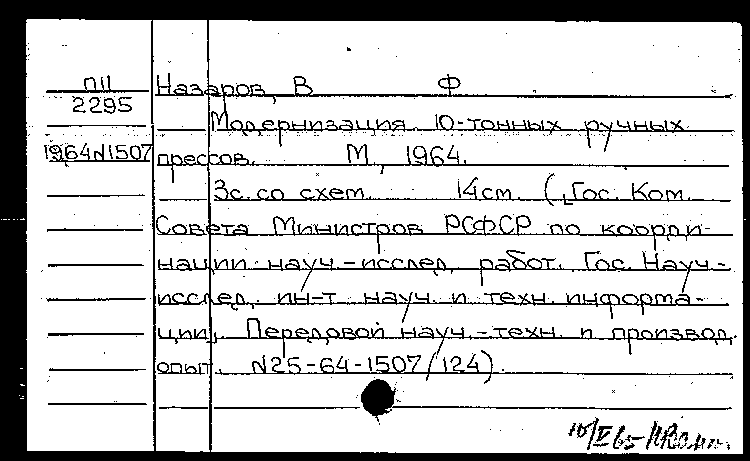 П11
2295
1964N1507
Назаров, В Ф
Модернизация 10-тонных ручных
прессов. М, 1964.
3с. со схем. 14см. (Гос. Ком.
Совета Министров РСФСР по коорди-
нации науч.-исслед. работ. Гос. Науч-
исслед. ин-т науч. и техн. информа-
ции. Передовой науч.-техн. и производ.
опыт. N25-64-1507/124)